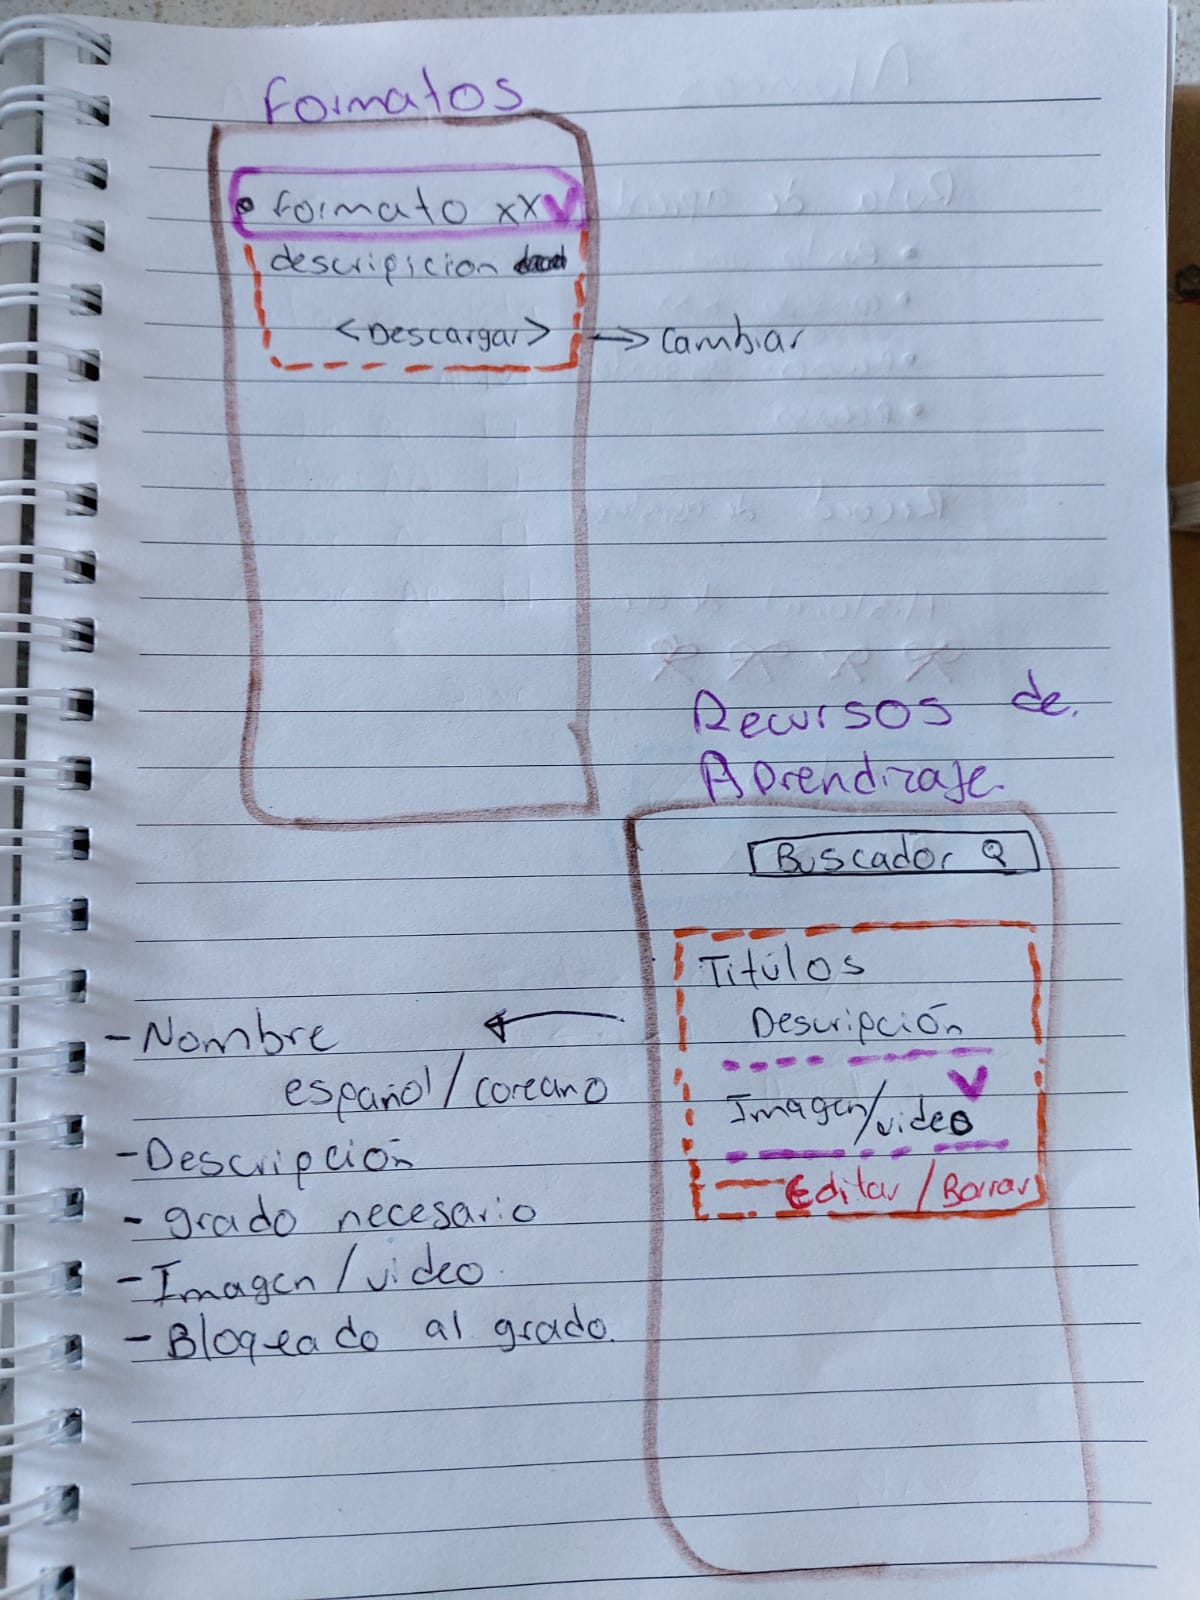 Formatos
• Formato xx
descripicion
<Descargar> → Cambiar
Recursos de.
Aprendizaje.
Buscador
Titúlos
Descripción
Imagen/video
Editar / Borrar
- Nombre
español/coreano
- Descripción
- grado necesario
- Imagen/video.
- Bloqueado al grado.